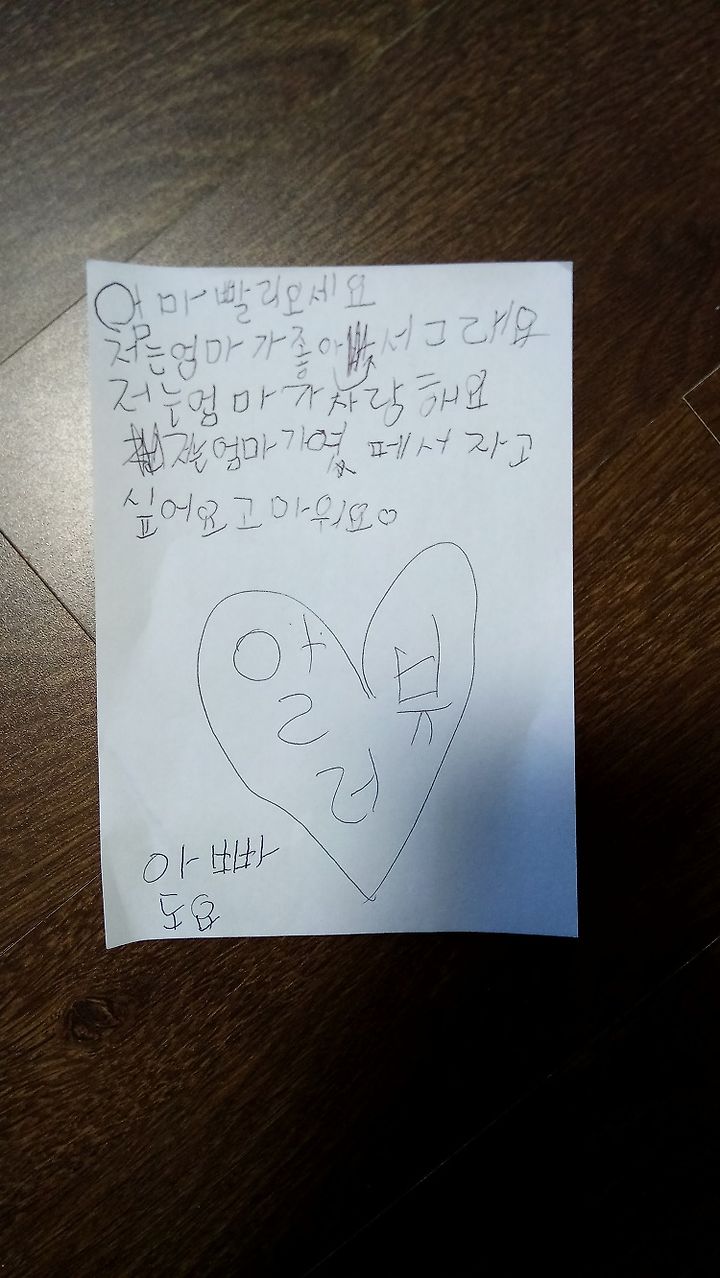 어마빨리오세요
저는엄마가좋아서그래요
저는엄마가사랑해요
저는엄마가옆페서자고
싶어요고마워요o
알러뷰
아빠
도요